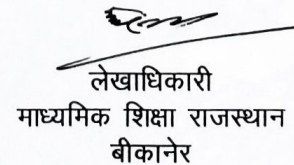 लेखाधिकारी
माध्यमिक शिक्षा राजस्थान
बीकानेर